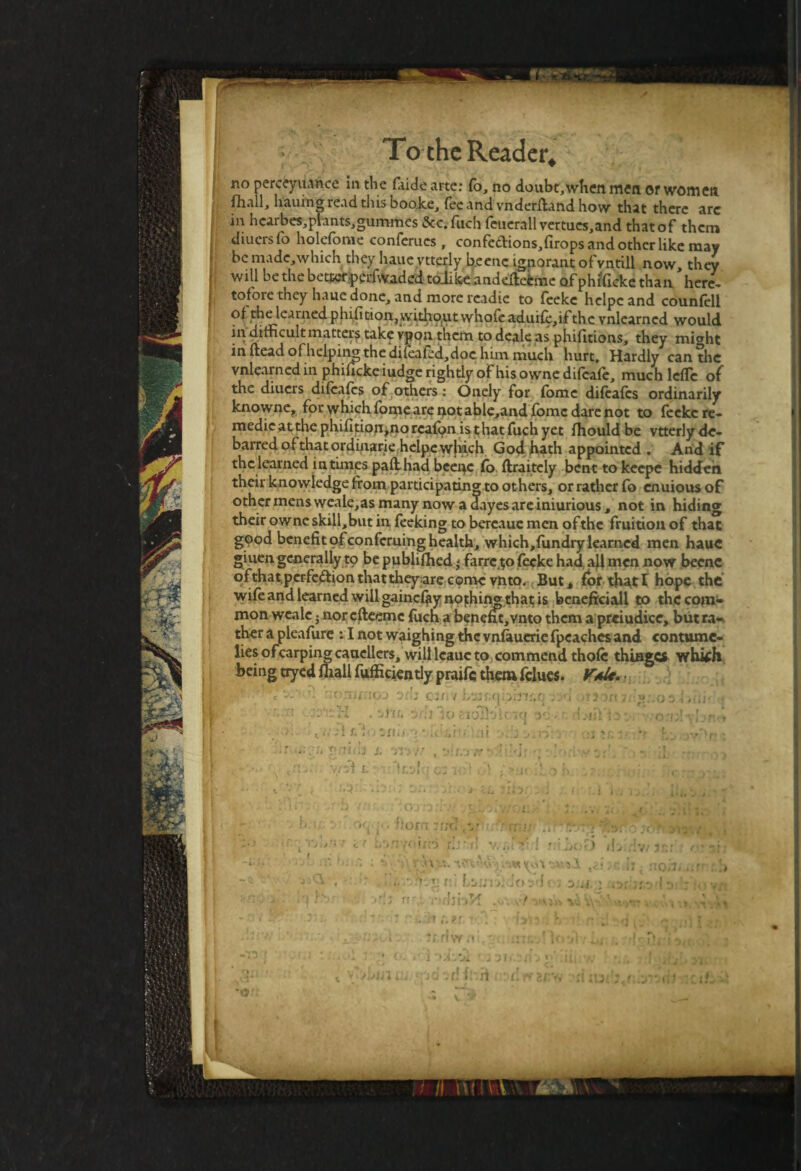 To the Reader.
no perceyuance in the saide arte: so, no doubt, when men or women
shall, hauing read this booke, see and vnderstand how that there are
in hearbes, plants, gummes &c. such seuerall vertues, and that of them
diuers so holesome conserues, confections, sirops and other like may
be made, which they haue vtterly beene ignorant of vntill now, they
will be the better perswaded to like and esteeme of phisicke than here-
tofore they haue done, and more readie to seeke helpe and counsell
of the learned phisition, without whose aduise, if the vnlearned would
in difficult matters take vpon them to deale as phisitions, they might
in stead of helping the diseased, doe him much hurt. Hardly can the
vnlearned in phisicke iudge rightly of his owne disease, much lesse of
the diuers diseases of others: Onely for some diseases ordinarily
knowne, for which some are notable, and some dare not to seeke re-
medie at the phisition, no reason is that such yet should be vtterly de-
barred of that ordinarie helpe which God hath appointed. And if
the learned in times past had beene so straitely bent to keepe hidden
their knowledge from participating to others, or rather so enuious of
other mens weale, as many now a dayes are iniurious, not in hiding
their owne skill, but in seeking to bereaue men of the fruition of that
good benefit of conseruing health, which, sundry learned men haue
giuen generally to be published; farre to seeke had all men now beene
of that perfection that they are come vnto. But, for that I hope the
wise and learned will gainesay nothing that is beneficiall to the com-
mon weale; nor esteeme such a benefit, vnto them a preiudice, but ra-
ther a pleasure: I not waighing the vnsauerie speaches and contume-
lies of carping cauellers, will leaue to commend those things which
being tryed shall sufficiently praise them selues. Vale.